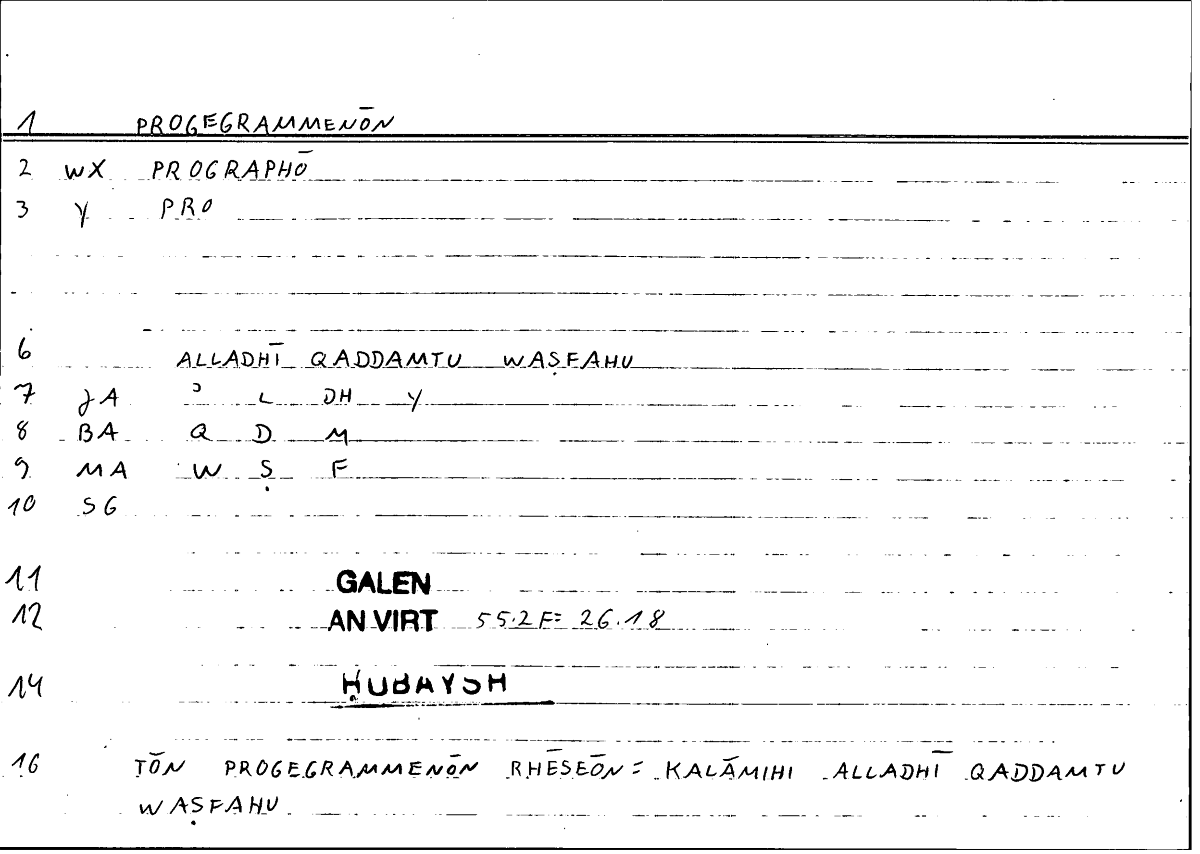 1 PROGEGRAMMENŌN
2 WX PROGRAPHŌ
3 Y PRO
6 ALLADHĪ QADDAMTU WAṢFAHU
7 JA ʾ L DH Y
8 BA Q D M
9 MA W Ṣ F
10 SG
11 GALEN
12 AN VIRT 55.2F= 26.18
14 ḤUBAYSH
16 TŌN PROGEGRAMMENŌN RHĒSEŌN = KALĀMIHI ALLADHĪ QADDAMTU
WAṢFAHU